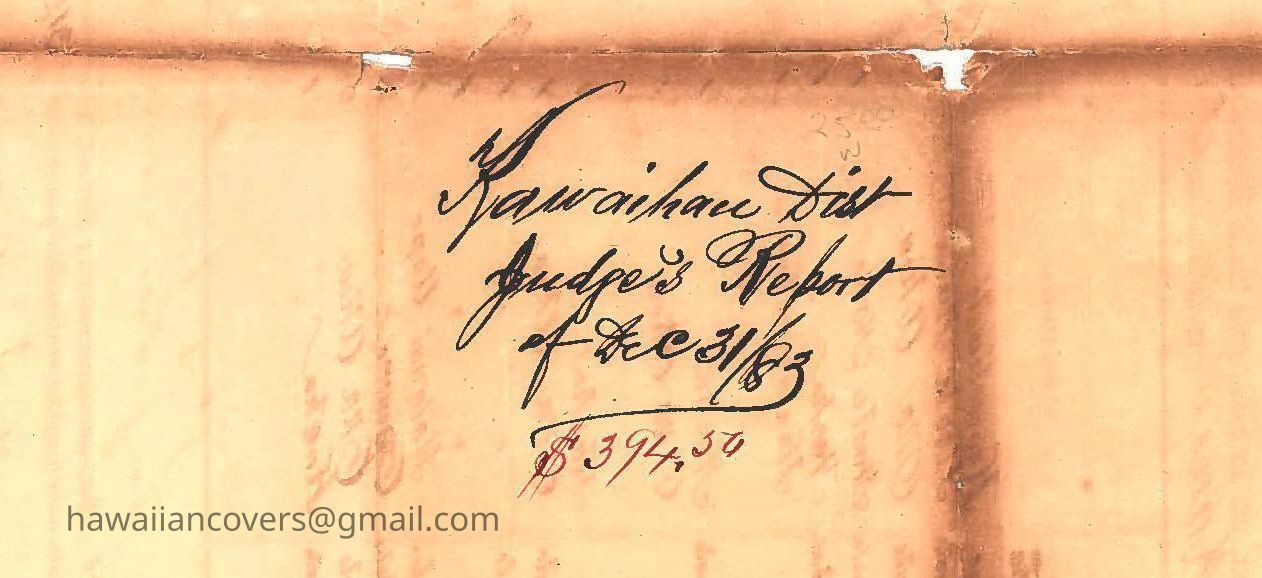 Kawaihau Dist
Judge's Report
of Dec 31/83
$394.50
hawaiiancovers@gmail.com